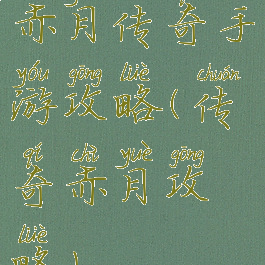 赤月传奇手
yóu gōng lüè chuán
游攻略(传
qí chì yuè gōng
奇赤月攻
lüè
略)